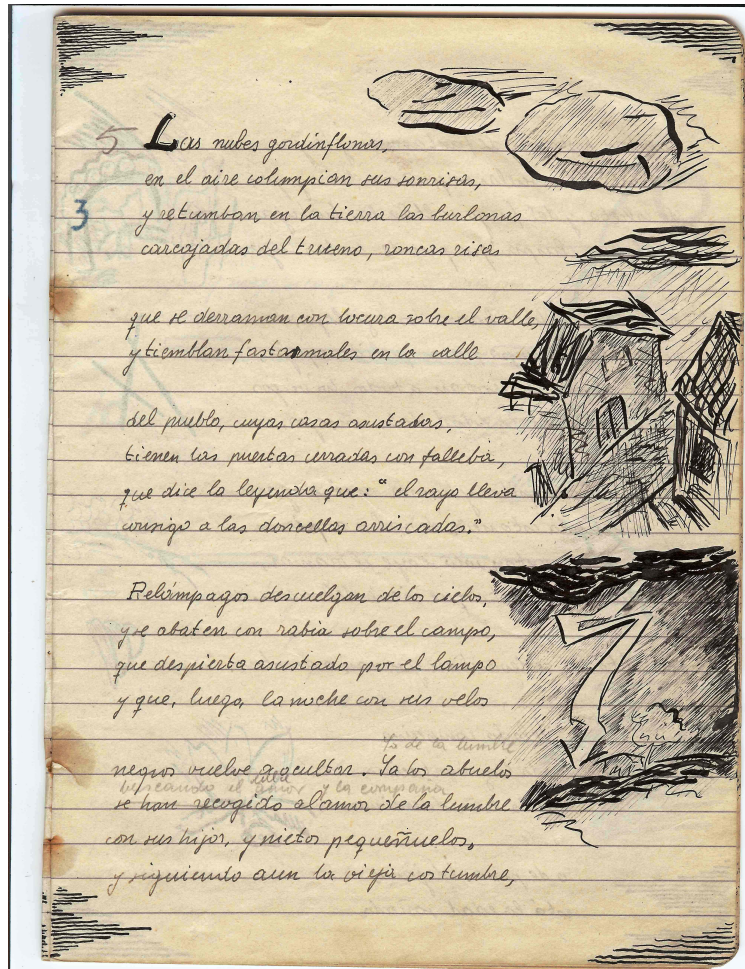 5 Las nubes gordinflonas,
en el aire columpian sus sonrisas,
3
y retumban en la tierra las burlonas
carcajadas del trueno, roncas risas
que se derraman con locura sobre el valle,
y tiemblan fastasmales en la calle
del pueblo, cuyas casas asustadas,
tienen las puertas cerradas con falleba,
que dice la leyenda que: "el rayo lleva
consigo a las doncellas arriscadas."
Relámpagos descuelgan de los cielos,
y se abaten con rabia sobre el campo,
que despierta asustado por el lampo
y que, luego, la noche con sus velos
Ya de la lumbre
negros vuelve a ocultar. Ya los abuelos
buscando el amor y la compañía
se han recogido al amor de la lumbre
con sus hijos, y nietos pequeñuelos,
y siguiendo aun la vieja costumbre,